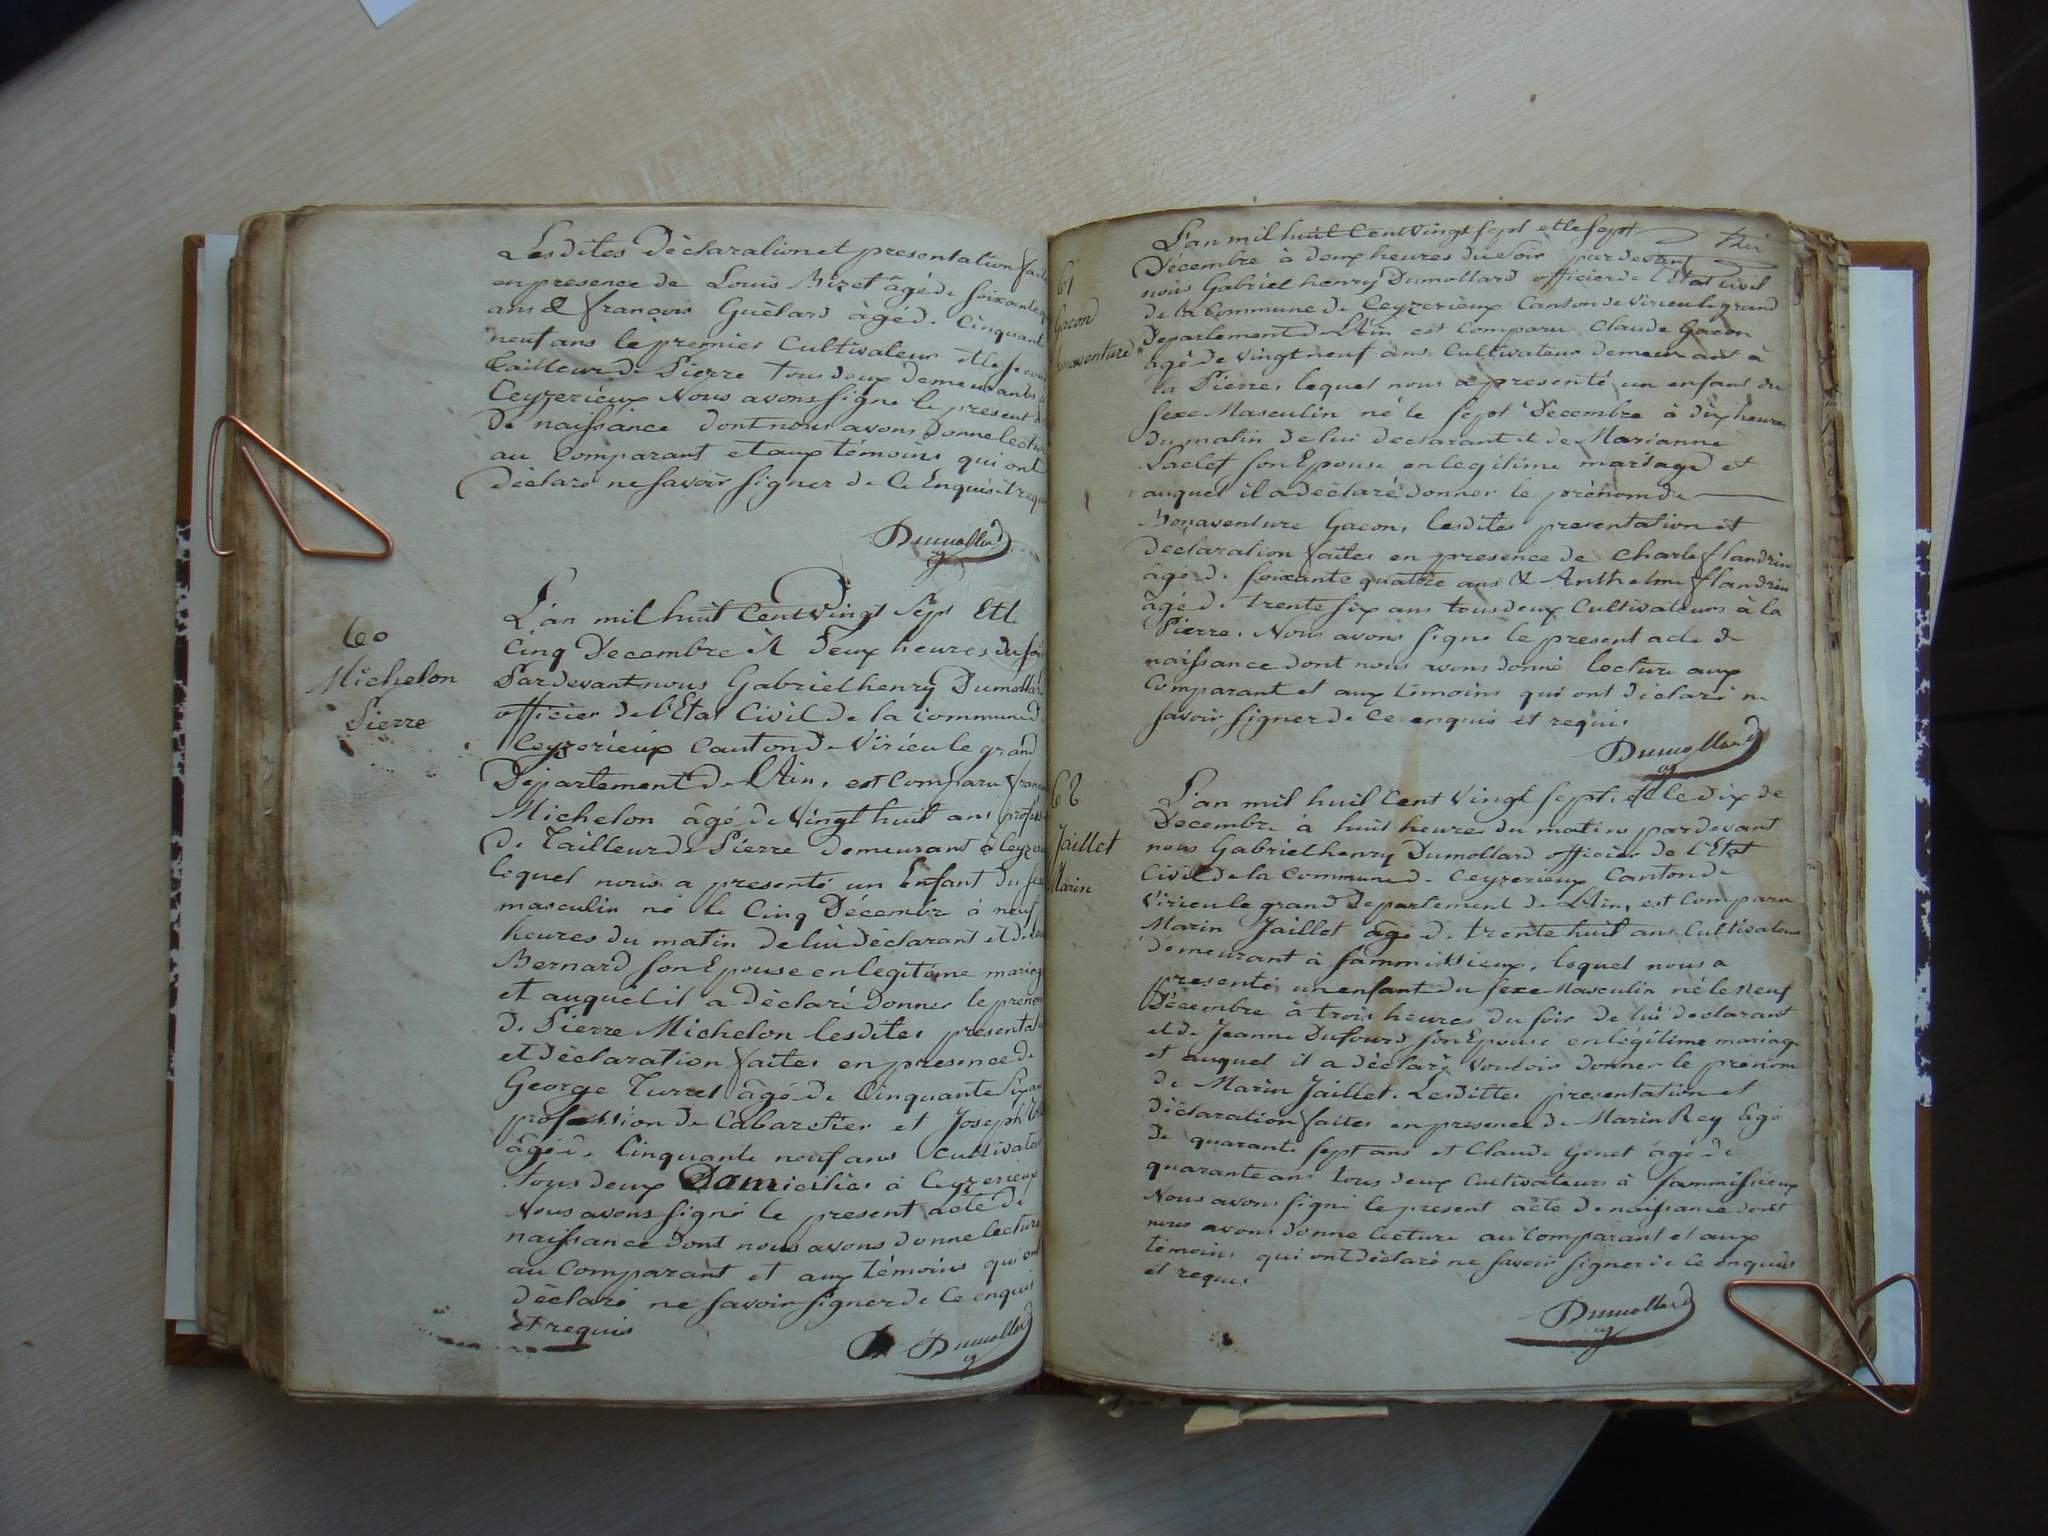 Lesdites Déclaration et presentation
en presence de Louis Bizet âgé de soixante
ans & françois Guélard âgé de Cinquante
neuf ans le premier Cultivateur et le
Tailleur de Pierre tous deux demeurants
Ceyzerieux Nous avons signé le present
De naissance dont nous avons Donné
au Comparant et aux témoins qui ont
Déclaré ne savoir signer de Ce Enquis et
Dumollard
60
Michelon
Pierre
L'an mil huit Cent Vingt Sept Et le
Cinq Décembre A Deux heures du soir
Pardevant nous Gabriel henry Dumollard
officier de l'Etat Civil de la Commune de
Ceyzerieux Canton de Virieu le grand
Département de l'Ain, est Comparu
Michelon âgé de Vingt huit ans
De Tailleur de Pierre demeurant à
lequel nous a presenté un Enfant du
masculin né le Cinq Décembre à neuf
heures du matin de lui déclarant et de
Bernard son Epouse en légitime mariage
et auquel il a Déclaré Donner le prénom
de Pierre Michelon lesdites
et déclaration faites en presence de
George Turrel âgé de Cinquante Six
profession de Cabaretier et Joseph
âgé de Cinquante neuf ans Cultivateur
tous deux Domiciliés à Ceyzerieux
Nous avons signé le present acte de
naissance dont nous avons donné lecture
au Comparant et aux témoins qui ont
déclaré ne savoir signer de Ce enquis
et requis
Dumollard
61
Gacon
L'an mil huit Cent Vingt sept et le sept
Décembre à deux heures du soir pardevant
nous Gabriel henry Dumollard officier de l'Etat Civil
de la Commune de Ceyzerieux Canton de Virieu le grand
Departement de l'Ain est Comparu Claude Gacon
âgé de vingt neuf ans Cultivateur demeurant à
la Pierre, lequel nous a presenté un enfant du
sexe Masculin né le sept Decembre à dix heures
du matin de lui déclarant et de Marianne
son Epouse en legitime mariage et
auquel il a déclaré donner le prénom de
Bonaventure Gacon, lesdites presentation et
déclaration faites en presence de Charle flandrin
âgé de soixante quatre ans & Anthelme flandrin
âgé de trente six ans tous deux Cultivateurs à la
Pierre. Nous avons signé le present acte de
naissance dont nous avons donné lecture aux
Comparant et aux témoins qui ont déclaré ne
savoir signer de Ce enquis et requis
Dumollard
62
Jaillet
Marin
L'an mil huit Cent Vingt sept, et le dix de
Decembre à huit heures du matin pardevant
nous Gabriel henry Dumollard officier de l'Etat
Civil de la Commune de Ceyzerieux Canton de
Virieu le grand Departement de l'Ain, est Comparu
Marin Jaillet âgé de trente huit ans Cultivateur
demeurant à sammissieux, lequel nous a
presenté un enfant du sexe Masculin né le Neuf
Décembre à trois heures du soir de lui declarant
et de Jeanne Dufourd son Epouse en légitime mariage
et auquel il a déclaré vouloir donner le prénom
de Marin Jaillet. Lesdittes presentation et
déclaration faites en presence de Marin Rey âgé
de quarante sept ans et Claude Genet âgé de
quarante ans tous deux Cultivateurs à sammissieux
Nous avons signé le present acte de naissance dont
nous avons donné lecture au Comparant et aux
témoins qui ont déclaré ne savoir signer de Ce enquis
et requis
Dumollard